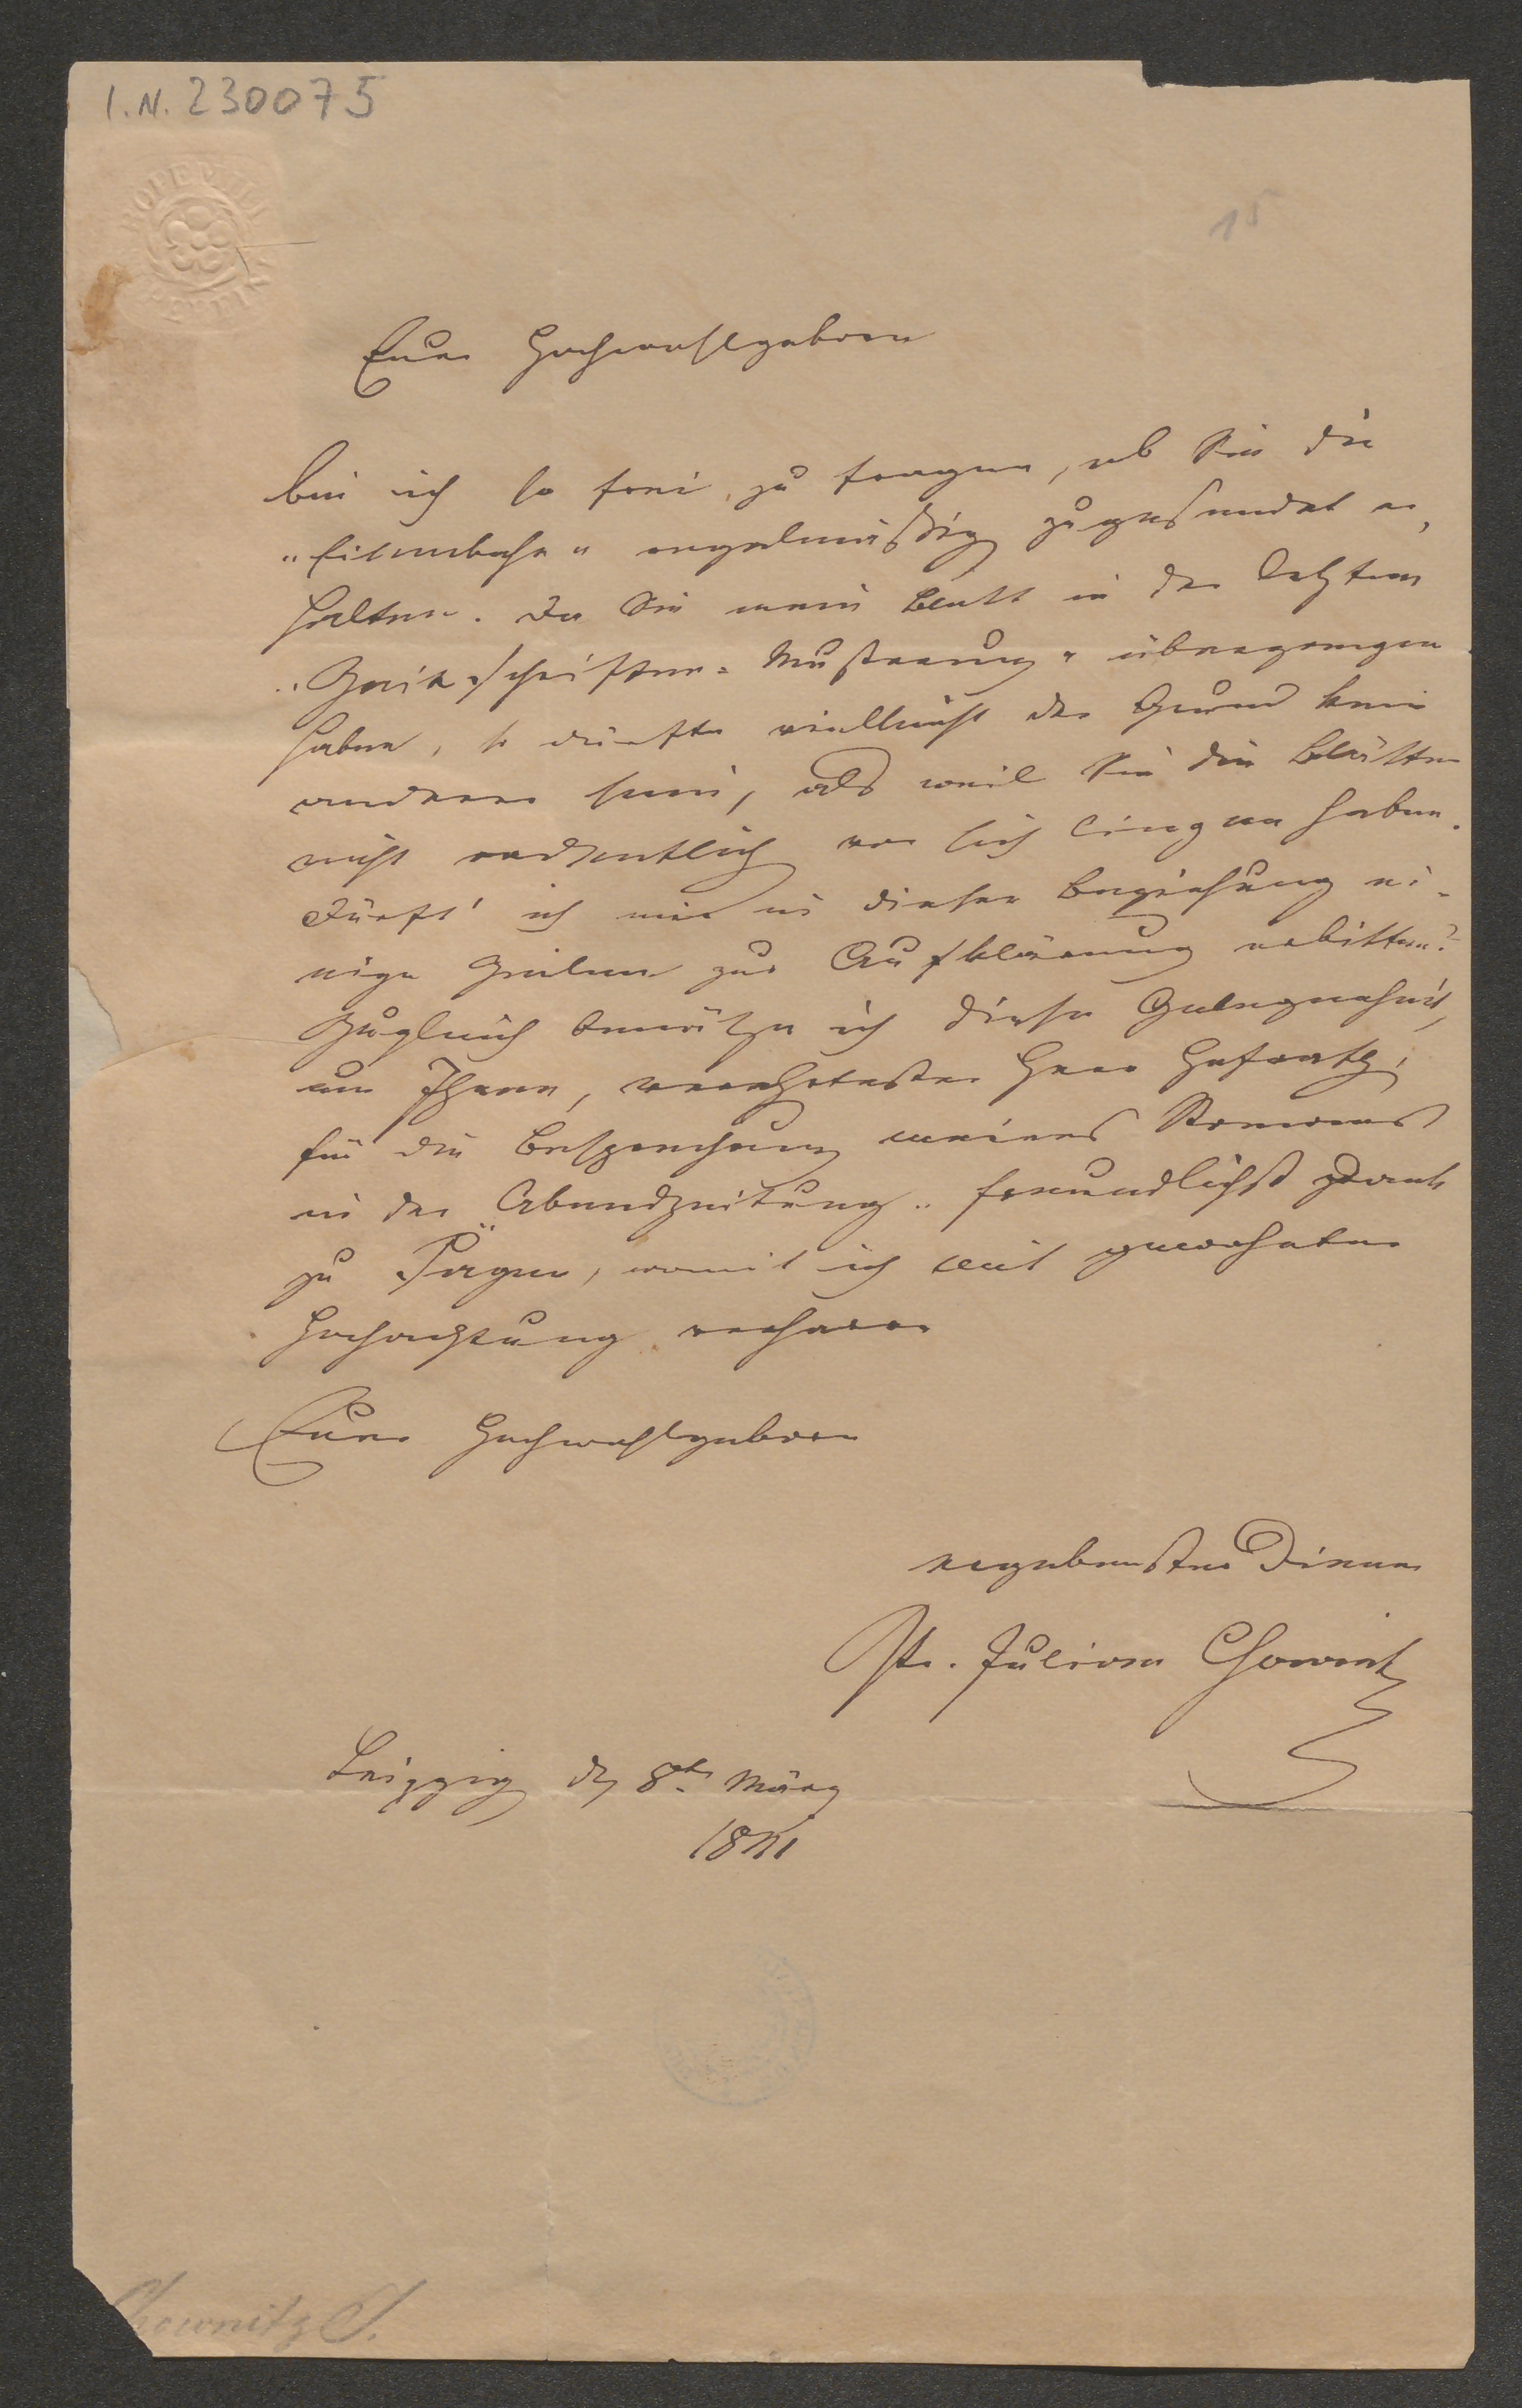 I.N. 230075
15
Euer Hochwohlgeboren
bin ich so frei, zu fragen, ob Sie die
„Eisenbahn" regelmäßig zugesendet er-
halten. Da Sie mein Blatt in der letzten
„Zeitschriften-Musterung" übergangen
haben, so dürfte vielleicht der Grund kein
anderer sein, als weil Sie die Blätter
nicht ordentlich vor sich liegen haben.
Dürft' ich mir in dieser Beziehung ei-
nige Zeilen zur Aufklärung erbitten?
Zugleich benütze ich diese Gelegenheit,
um Ihnen, verehrtester Herr Hofrath,
für die Besprechung meines Romans
in der Abendzeitung" freundlichst Dank
zu sagen, womit ich mit gewohnter
Hochachtung verharre
Euer Hochwohlgeboren
ergebenster Diener
Dr. Julian Chownitz
Leipzig d 8t. März
1841
Chownitz J.